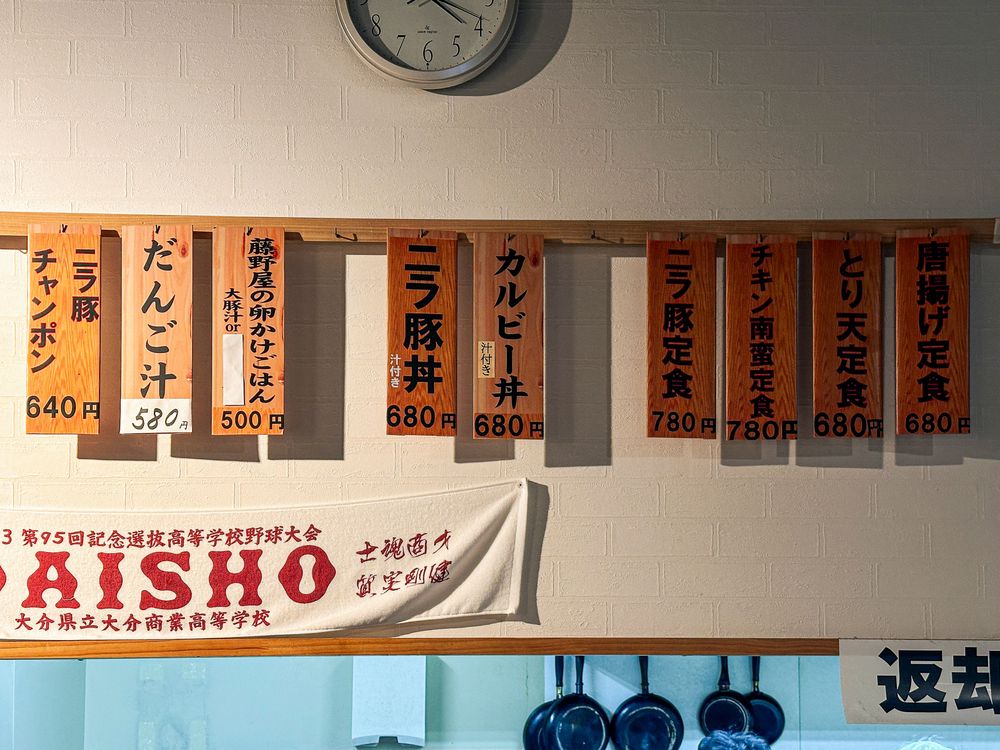 8 7 6 5 4
ニラ豚
チャンポン
640円
だんご汁
580円
藤野屋の卵かけごはん
大豚汁or
500円
ニラ豚丼
汁付き
680円
カルビー丼
汁付き
680円
ニラ豚定食
780円
チキン南蛮定食
780円
とり天定食
680円
唐揚げ定食
680円
3 第95回記念選抜高等学校野球大会
DAISHO
大分県立大分商業高等学校
士魂商才
質実剛健
返却